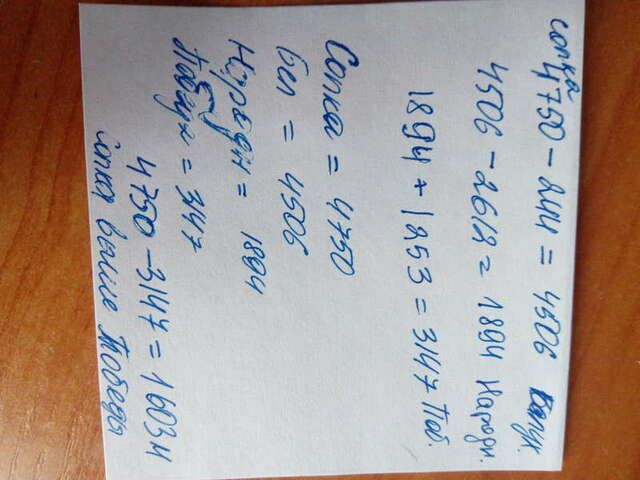 сопка 4750 - 244 = 4506
4506 - 2612 = 1894 Народн.
1894 + 1253 = 3147 Поб.
Сопка = 4750
Бел = 4506
Народн = 1894
Победа = 3147
4750 - 3147 = 1603 м
сопка выше Победы